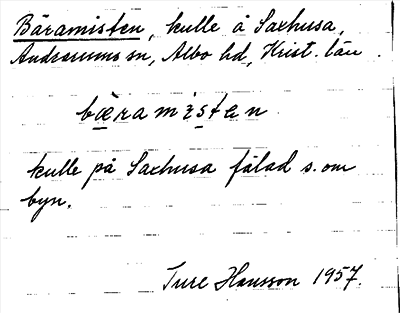 Bäramisten, kulle å Saxhusa,
Andrarums sn, Albo hd, Krist. län.
bæramisten
kulle på Saxhusa fälad s. om
byn.
Ture Hansson 1957.